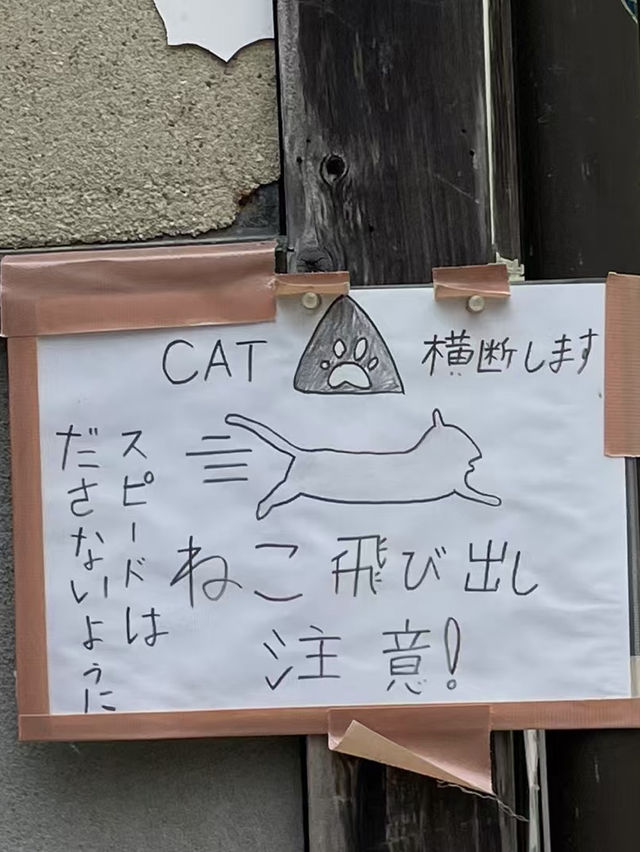 CAT 横断します
スピードは
ださないように
ねこ飛び出し
注意!